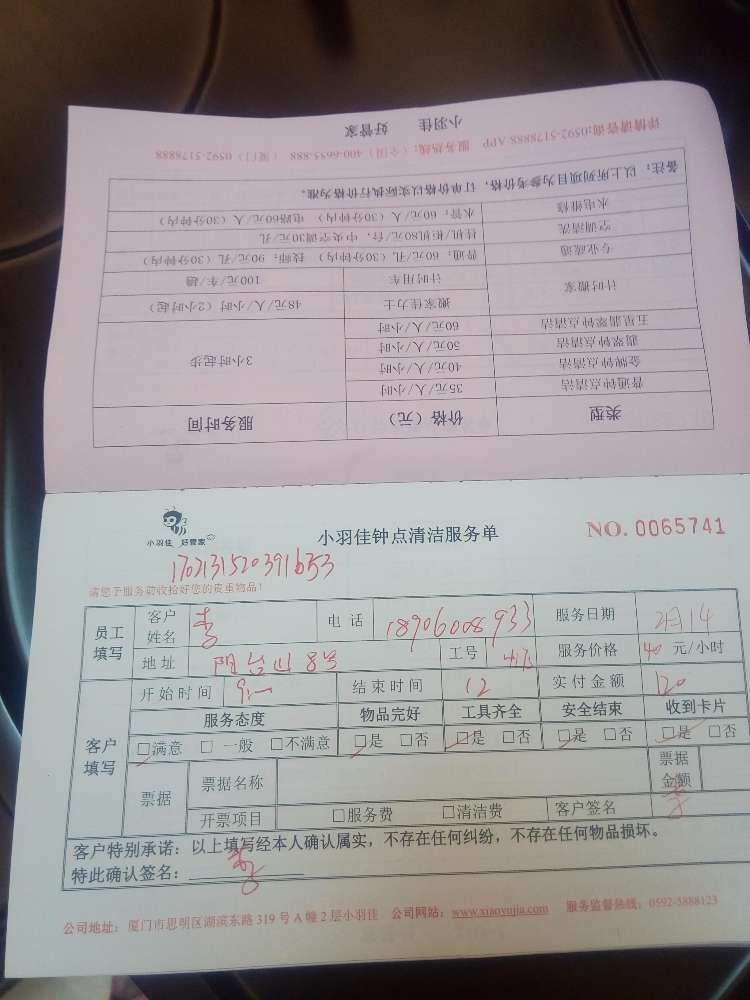 小羽佳 好管家
详情请咨询:0592-5178888 APP 服务热线:（全国）400-6655-888 （厦门）0592-5178888
备注：以上所列项目为参考价格，订单价格以实际执行价格为准。
水电维修 水管：60元/人（30分钟内） 电路60元/人（30分钟内）
空调清洗 挂机/柜机80元/台，中央空调30元/孔
专业疏通 普通：60元/孔（30分钟内） 技师：90元/孔（30分钟内）
计时搬家 计时用车 100元/车/趟
搬家佳力士 48元/人/小时（2小时起）
五星翡翠钟点清洁 60元/人/小时
翡翠钟点清洁 50元/人/小时 3小时起步
金牌钟点清洁 40元/人/小时
普通钟点清洁 35元/人/小时
类型 价格（元） 服务时间
小羽佳 好管家
小羽佳钟点清洁服务单
NO. 0065741
1702131520391653
请您予服务前收拾好您的贵重物品！
员工填写 客户姓名 李 电话 18906008933 服务日期 2月14
地址 阳台山8号 工号 服务价格 40 元/小时
客户填写 开始时间 9:— 结束时间 12 实付金额 120
服务态度 物品完好 工具齐全 安全结束 收到卡片
□满意 □一般 □不满意 □是 □否 □是 □否 □是 □否 □是 □否
票据 票据名称 票据金额
开票项目 □服务费 □清洁费 客户签名 李
客户特别承诺：以上填写经本人确认属实，不存在任何纠纷，不存在任何物品损坏。
特此确认签名：李
公司地址：厦门市思明区湖滨东路319号A幢2层小羽佳 公司网站：www.xiaoyujia.com 服务监督热线：0592-5888123